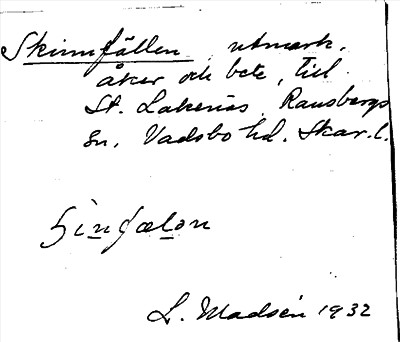 Skinnfällen utmark,
åker och bete, till
St. Lakenäs Ransbergs
sn, Vadsbo hd. Skar. l.
L. Madsén 1932